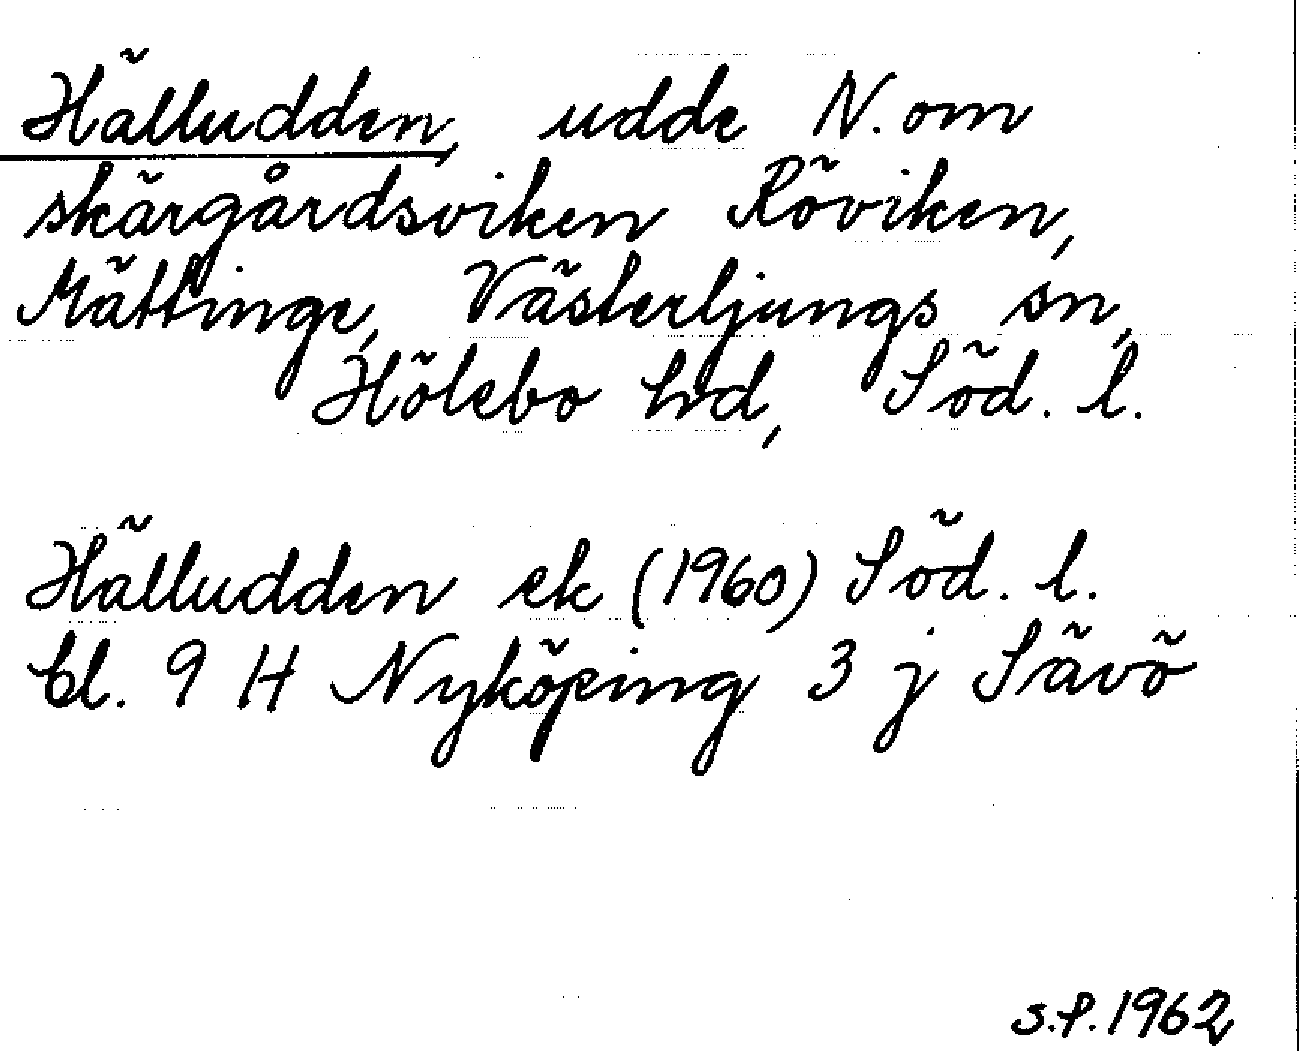 Hälludden, udde N. om
skärgårdsviken Röviken,
Mättinge, Västerljungs sn,
Hölebo hd, Söd. l.
Hälludden ek (1960) Söd. l.
bl. 9 H Nyköping 3 j Sävö
S.P. 1962